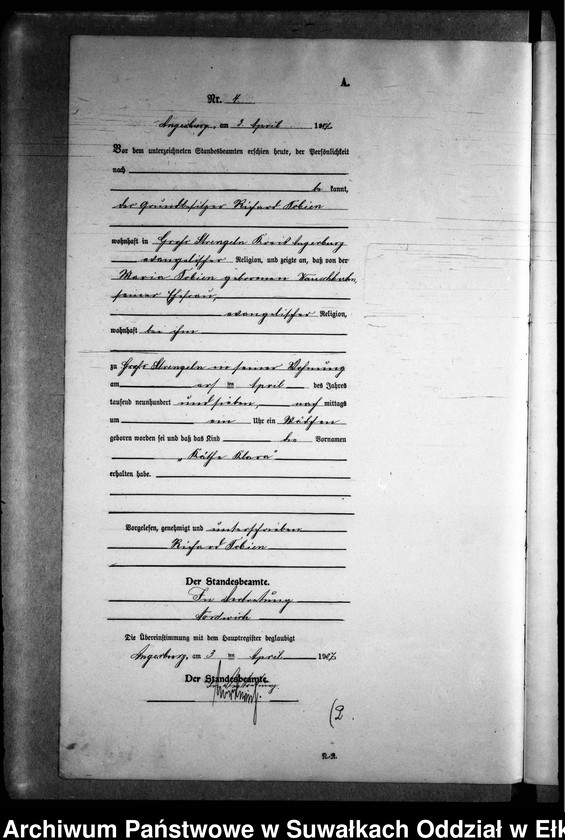 A.
Nr. 4.
Angerburg, am 3 April 1907.
Vor dem unterzeichneten Standesbeamten erschien heute, der Persönlichkeit
nach
be kannt,
der Grundbesitzer Richard Tobien
wohnhaft in Groß Strengeln Kreis Angerburg
evangelischer Religion, und zeigte an, daß von der
Maria Tobien geborenen
seiner Ehefrau,
evangelischer Religion,
wohnhaft bei ihm
zu Groß Strengeln in seiner Wohnung
am ersten April des Jahres
tausend neunhundert und sieben, nach mittags
um ein Uhr ein Mädchen
geboren worden sei und daß das Kind die Vornamen
„Käthe Klara"
erhalten habe.
Vorgelesen, genehmigt und unterschrieben
Richard Tobien
Der Standesbeamte.
In Vertretung
Nordwich
Die Übereinstimmung mit dem Hauptregister beglaubigt
Angerburg, am 3 ten April 1907.
Der Standesbeamte.
In Vertretung.
(2.
R.-R.
Archiwum Państwowe w Suwałkach Oddział w Ełk